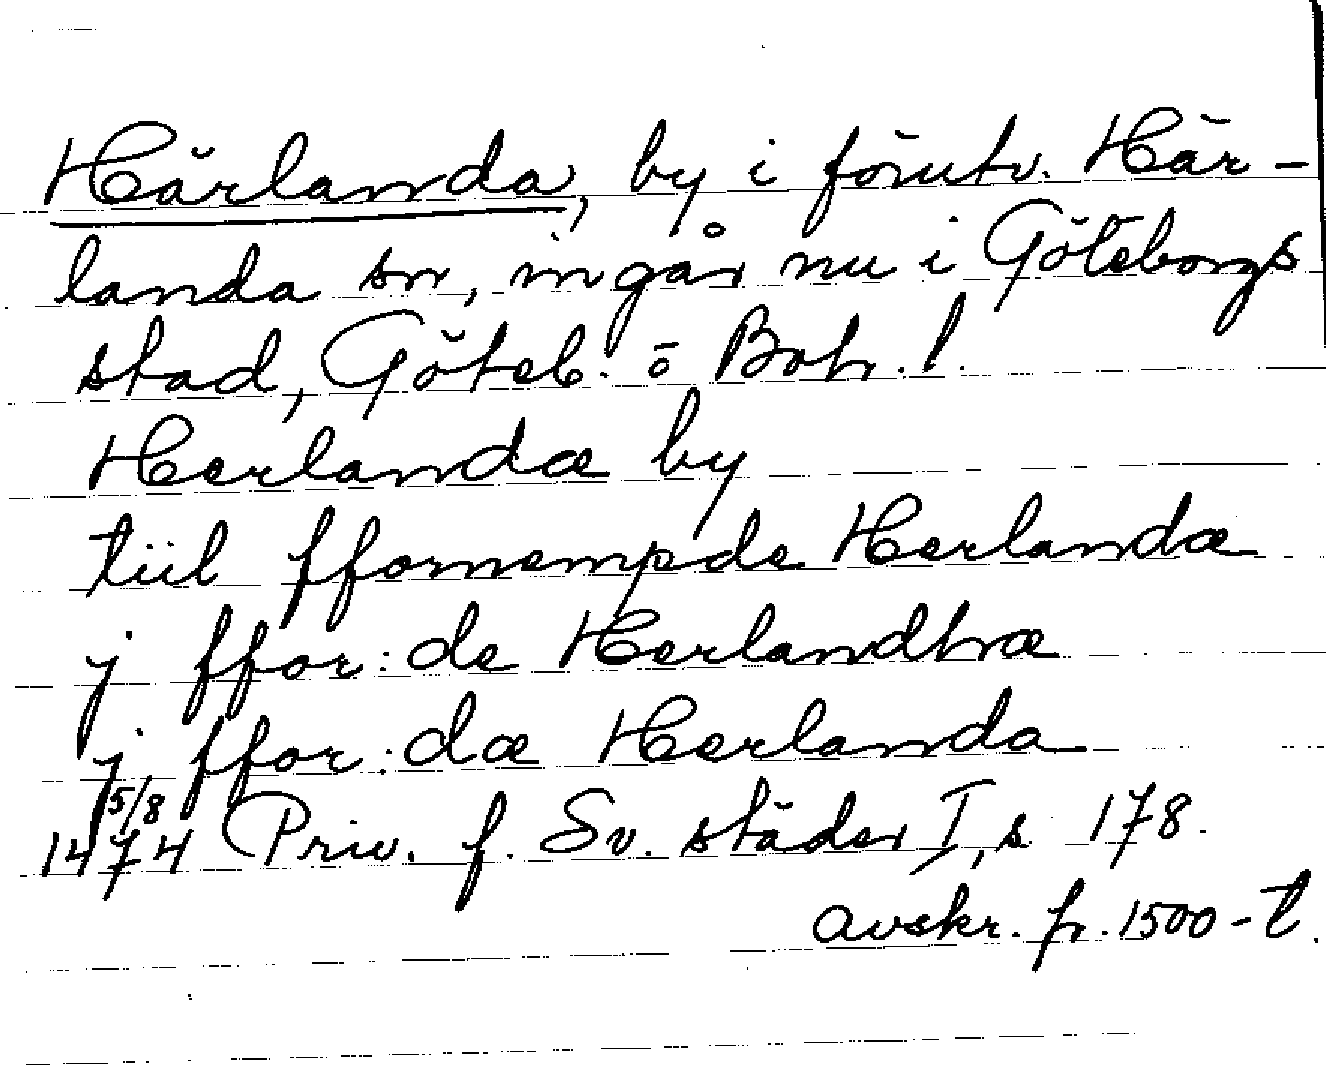 Härlanda, by i förutv. Här-
landa sn, ingår nu i Göteborgs
stad, Göteb. o Boh. l.
Herlandæ by
tiil ffornempde Herlandæ
j ffor:de Herlandhæ
j ffor:dæ Herlanda
1474 5/8 Priv. f. Sv. städer I, s 178.
avskr. fr. 1500-t.